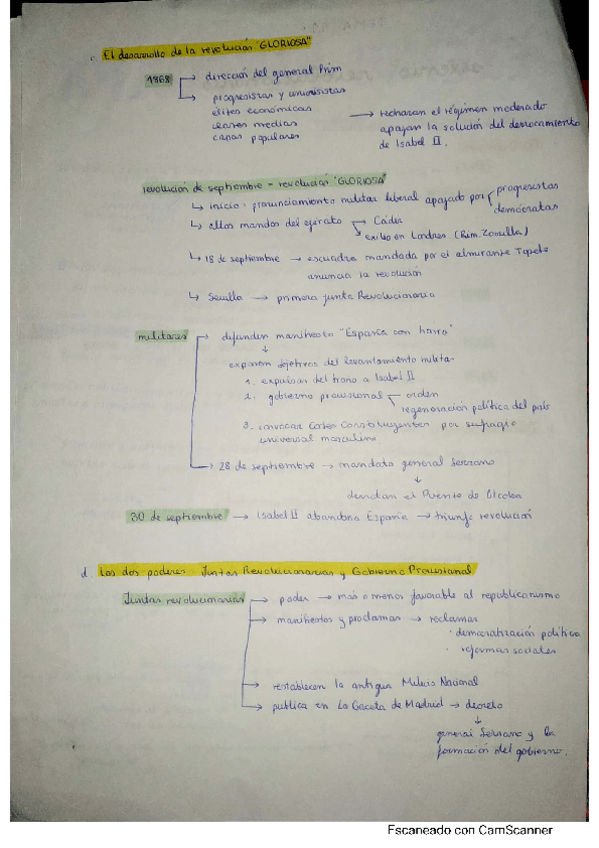 c. El desarrollo de la revolución "GLORIOSA"
1868 → dirección del general Prim
→ progresistas y unionistas
elites económicas
clases medias
capas populares
→ rechazan el régimen moderado
apoyan la solución del derrocamiento
de Isabel II.
revolución de septiembre = revolución "GLORIOSA"
↳ inicio: pronunciamiento militar liberal apoyado por progresistas
demócratas
↳ altos mandos del ejército → Cádiz
exilio en Londres (Prim, Zorrilla)
↳ 18 de septiembre → escuadra mandada por el almirante Topete
anuncia la revolución
↳ Sevilla → primera junta Revolucionaria
militares → difunden manifiesto "España con honra"
↓
exponen objetivos del levantamiento militar
1. expulsar del trono a Isabel II
2. gobierno provisional orden
regeneración política del país
3. convocar Cortes Constituyentes por sufragio
universal masculino
→ 28 de septiembre → mandato general Serrano
↓
derrotan el Puente de Alcolea
30 de septiembre → Isabel II abandona España → triunfa revolución
d. Los dos poderes: Juntas Revolucionarias y Gobierno Provisional
Juntas revolucionarias → poder → más o menos favorable al republicanismo
→ manifiestos y proclamas → reclamar
· democratización política
· reformas sociales
→ restablecen la antigua Milicia Nacional
→ publica en La Gaceta de Madrid → decreto
↓
general Serrano y la
formación del gobierno.
Escaneado con CamScanner